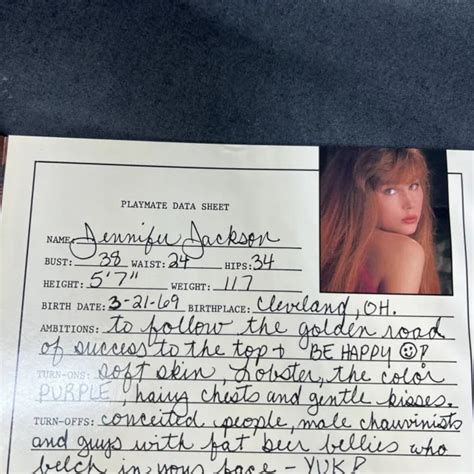 PLAYMATE DATA SHEET
NAME: Jennifer Jackson
BUST: 38 WAIST: 24 HIPS: 34
HEIGHT: 5'7" WEIGHT: 117
BIRTH DATE: 3-21-69 BIRTHPLACE: Cleveland, OH.
AMBITIONS: to follow the golden road
of success to the top + BE HAPPY ☺!
TURN-ONS: soft skin, lobster, the color
PURPLE, hairy chests and gentle kisses.
TURN-OFFS: conceited people, male chauvinists
and guys with fat beer bellies who
belch in your face - YUK!